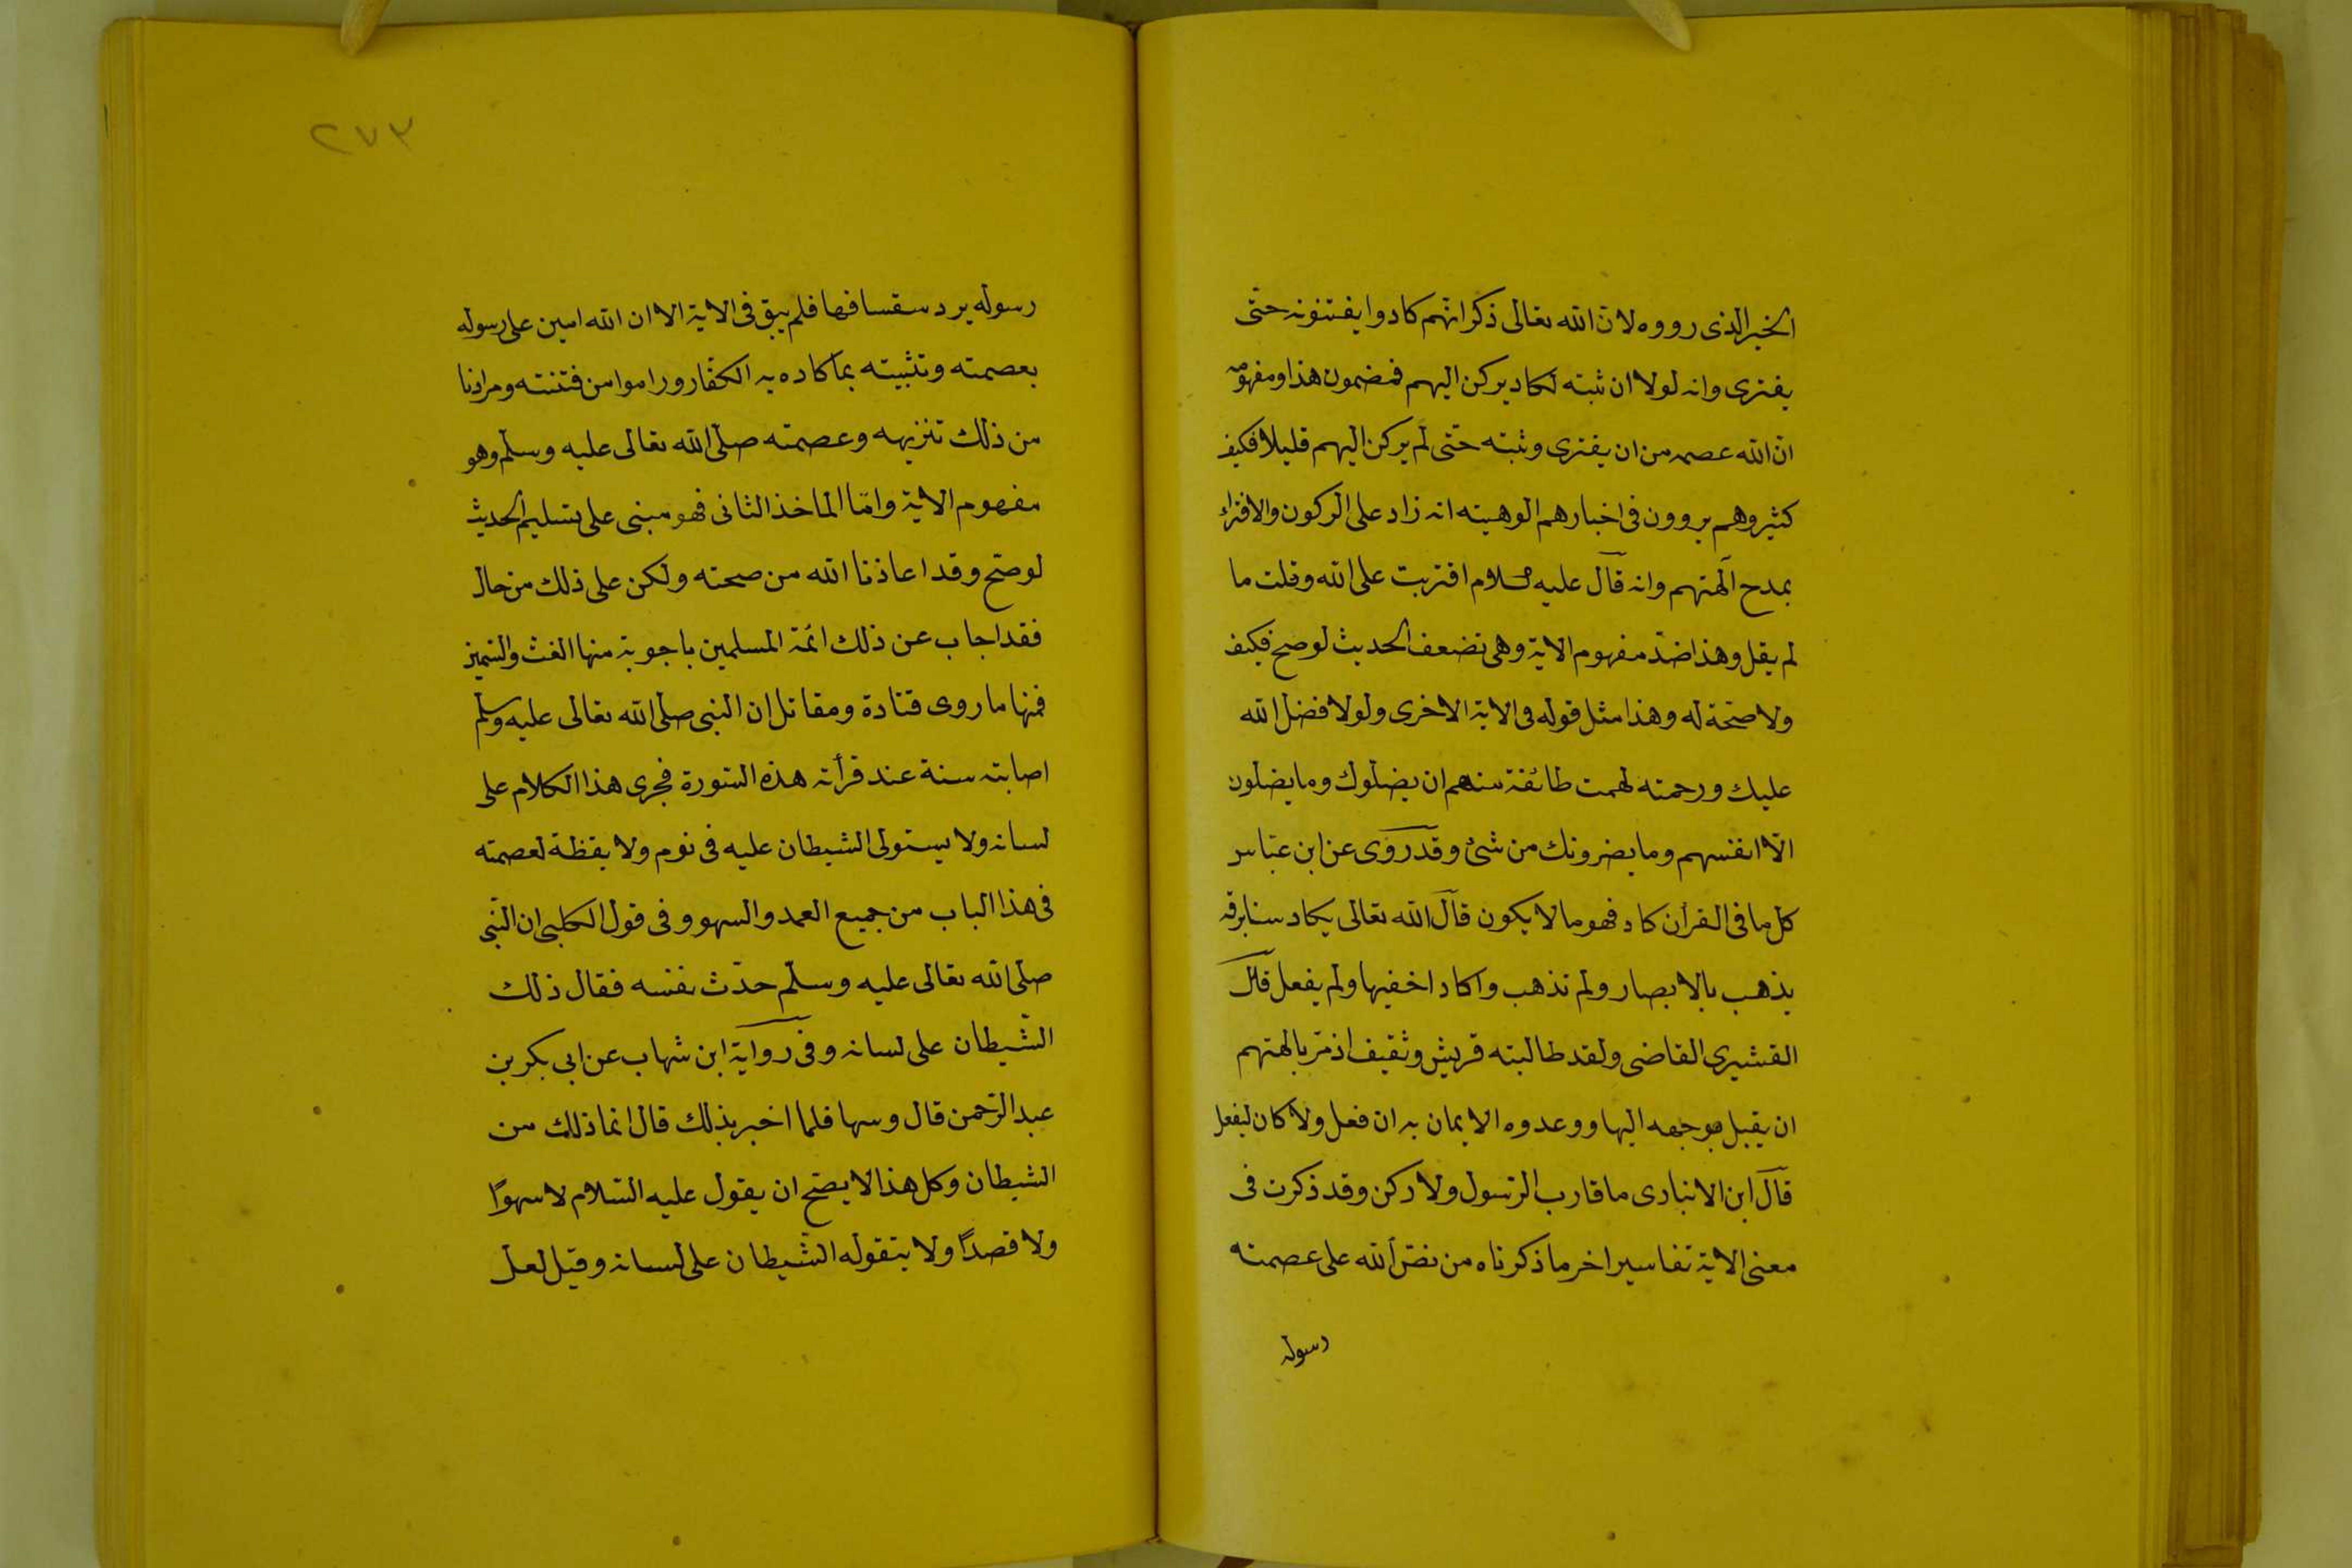 الخبر الذى رووه لان الله تعالى ذكر انهم كادوا يفتنونه حتى
يفترى وانه لولا ان ثبته لكاد يركن اليهم فمضمون هذا ومفهومه
ان الله عصمه من ان يفترى وثبته حتى لم يركن اليهم قليلا فكيف
كثير وهم يروون فى اخبارهم الوهيته انه زاد على الركون والافتراء
بمدح آلهتهم وانه قال عليه السلام افتريت على الله وقلت ما
لم يقل وهذا ضد مفهوم الاية وهى تضعف الحديث لو صح فكيف
ولا صحة له وهذا مثل قوله فى الاية الاخرى ولولا فضل الله
عليك ورحمته لهمت طائفة منهم ان يضلوك وما يضلون
الا انفسهم وما يضرونك من شئ وقد روى عن ابن عباس
كل ما فى القرأن كاد فهو ما لا يكون قال الله تعالى يكاد سنا برقه
يذهب بالابصار ولم تذهب واكاد اخفيها ولم يفعل قال
القشيرى القاضى ولقد طالبته قريش وثقيف اذ مر بالهتهم
ان يقبل بوجهه اليها ووعدوه الايمان به ان فعل ولا كان ليفعل
قال ابن الانبارى ما قارب الرسول ولا ركن وقد ذكرت فى
معنى الاية تفاسير اخر ما ذكرناه من نص الله على عصمته
رسوله
٢٧٣
رسوله يرد سفسافها فلم يبق فى الاية الا ان الله امين على رسوله
بعصمته وتثبيته بما كاده به الكفار وراموا من فتنته ومرادنا
من ذلك تنزيهه وعصمته صلى الله تعالى عليه وسلم وهو
مفهوم الاية واما الماخذ الثانى فهو مبنى على تسليم الحديث
لو صح وقد اعاذنا الله من صحته ولكن على ذلك من حال
فقد اجاب عن ذلك ائمة المسلمين باجوبة منها الغث والسمين
فمنها ما روى قتادة ومقاتل ان النبى صلى الله تعالى عليه وسلم
اصابته سنة عند قرأته هذه السورة فجرى هذا الكلام على
لسانه ولا يستولى الشيطان عليه فى نوم ولا يقظة لعصمته
فى هذا الباب من جميع العمد والسهو وفى قول الكلبى ان النبى
صلى الله تعالى عليه وسلم حدث نفسه فقال ذلك
الشيطان على لسانه وفى رواية ابن شهاب عن ابى بكر بن
عبد الرحمن قال وسها فلما اخبر بذلك قال انما ذلك من
الشيطان وكل هذا لا يصح ان يقول عليه السلام لا سهوا
ولا قصدا ولا يتقوله الشيطان على لسانه وقيل لعل